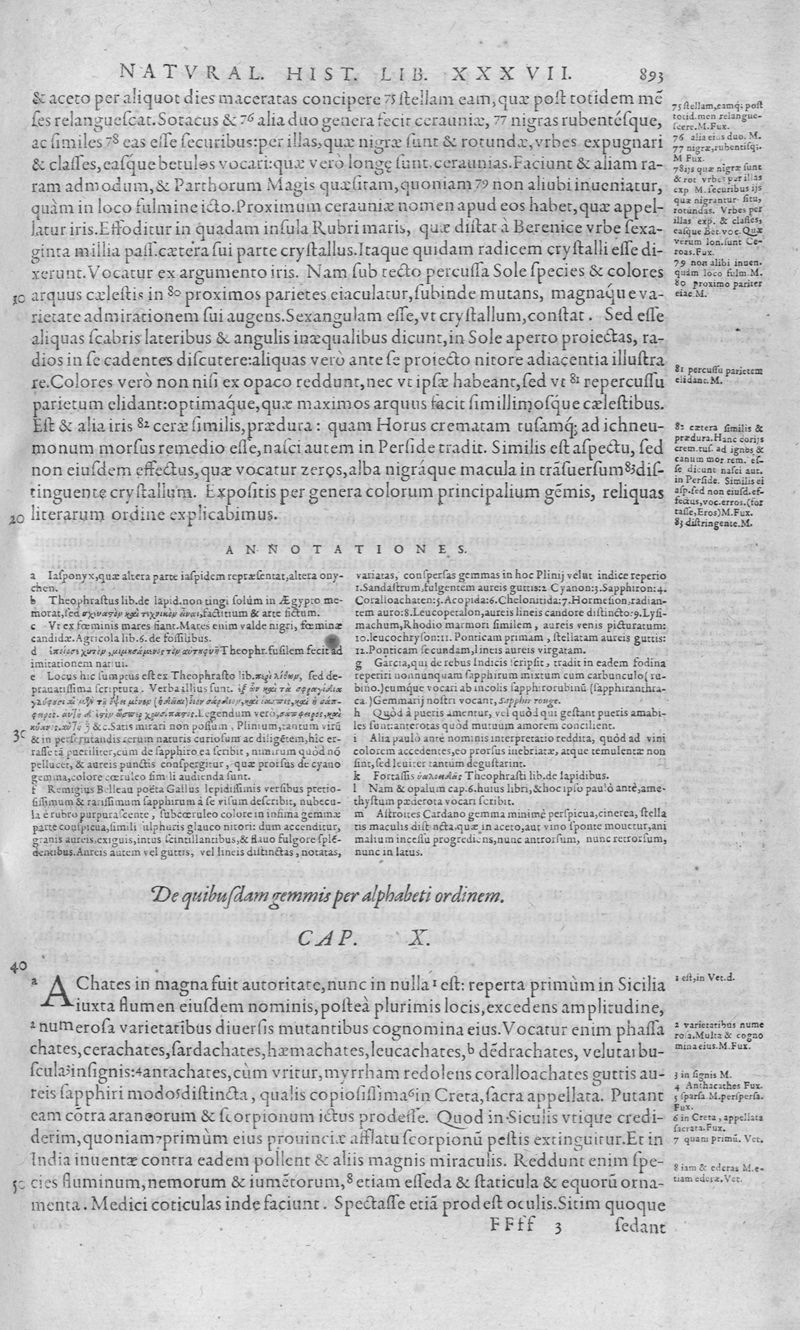 NATVRAL. HIST. LIB. XXXVII. 893
& aceto per aliquot dies maceratas concipere 75 ſtellam eam, quæ poſt totidem mē
ſes relangueſcat. Sotacus & 76 alia duo genera fecit cerauniæ, 77 nigras rubentéſque,
ac ſimiles 78 eas eſſe ſecuribus: per illas, quæ nigræ ſunt & rotundæ, vrbes expugnari
& claſſes, eaſque betulos vocari: quæ verò longę ſunt. ceraunias. Faciunt & aliam ra-
ram admodum, & Parthorum Magis quæſitam, quoniam 79 non aliubi inueniatur,
quàm in loco fulmine icto. Proximum cerauniæ nomen apud eos habet, quæ appel-
latur iris. Effoditur in quadam inſula Rubri maris, quæ diſtat à Berenice vrbe ſexa-
ginta millia paſſ. cætéra ſui parte cryſtallus. Itaque quidam radicem cryſtalli eſſe di-
xerunt. Vocatur ex argumento iris. Nam ſub tecto percuſſa Sole ſpecies & colores
10 arquus cæleſtis in 80 proximos parietes eiaculatur, ſubinde mutans, magnaque va-
rietate admirationem ſui augens. Sexangulam eſſe, vt cryſtallum, conſtat. Sed eſſe
aliquas ſcabris lateribus & angulis inæqualibus dicunt, in Sole aperto proiectas, ra-
dios in ſe cadentes diſcutere: aliquas verò ante ſe proiecto nitore adiacentia illuſtra
re. Colores verò non niſi ex opaco reddunt, nec vt ipſæ habeant, ſed vt 81 repercuſſu
parietum elidant: optimáque, quæ maximos arquus facit ſimillimoſque cæleſtibus.
Eſt & alia iris 82 ceræ ſimilis, prædura: quam Horus crematam tuſamq; ad ichneu-
monum morſus remedio eſſe, naſci autem in Perſide tradit. Similis eſt aſpectu, ſed
non eiuſdem effectus, quæ vocatur zeros, alba nigráque macula in trāſuerſum 83 diſ-
tinguente cryſtallum. Expoſitis per genera colorum principalium gēmis, reliquas
20 literarum ordine explicabimus.
75 ſtellam, eamq; poſt
totid. men relangue-
ſcere. M. Fux.
76 alia eius duo. M.
77 nigræ, rubentiſq;.
M Fux.
78 ijs quæ nigræ ſunt
& rot vrbes per illas
exp M. ſecuribus ijs
quæ nigrantur ſitu,
rotundas. Vrbes per
illas exp. & claſſes,
eaſque Bet. voc. Quæ
verum lon. ſunt Ce-
roas. Fux.
79 non alibi inuen.
quàm loco fulm. M.
80 proximo pariter
eiac M.
81 percuſſu parietem
elidant. M.
82 cætera ſimilis &
prædura. Hanc
crem. tuſ. ad
canum mor rem. eſ-
ſe dicunt naſci aut.
in Perſide. Similis ei
aſp. ſed non eiuſd. ef-
fectus, voc. erros. (for
taſſe, Eros) M. Fux.
83 diſtringente. M.
ANNOTATIONES.
a Iaſponyx, quæ altera parte iaſpidem repræſentat, altera ony-
chen.
b Theophraſtus lib. de lapid. non tingi ſolùm in Ægypto me-
morat, ſed factitium & arte fictum.
c Vt ex fœminis mares fiant. Mares enim valde nigri, fœminæ
candidæ. Agricola lib. 6. de foſſilibus.
d Theophr. fuſilem fecit ad
imitationem natiui.
e Locus hic ſumptus eſt ex Theophraſto lib. περὶ λίθων, ſed de-
prauatiſſima ſcriptura. Verba illius ſunt.
Legendum vero,
&c. Satis mirari non poſſum, Plinium, tantum virū
30 & in perſcrutandis rerum naturis curioſum ac diligētem, hîc er-
raſſe tā pueriliter, cum de ſapphiro ea ſcribit, nimirum quòd nō
pellucet, & aureis punctis conſpergitur, quæ prorſus de cyano
gemma, colore cœruleo ſimili audienda ſunt.
f Remigius Belleau poëta Gallus lepidiſſimis verſibus pretio-
ſiſſimum & rariſſimum ſapphirum à ſe viſum deſcribit, nubecu-
la è rubro purpuraſcente, ſubcœruleo colore in infima gemmæ
parte conſpicua, ſimili ſulphuris glauco nitori: dum accenditur,
granis aureis, exiguis, intus ſcintillantibus, & flauo fulgore ſplē-
dentibus. Aureis autem vel guttis, vel lineis diſtinctas, notatas,
variatas, conſperſas gemmas in hoc Plinij velut indice reperio
1. Sandaſtrum, fulgentem aureis guttis: 2 Cyanon: 3. Sapphiron: 4.
Coralloachaten: 5. Acopida: 6. Chelonitida: 7. Hormeſion, radian-
tem auro: 8. Leucopetalon, aureis lineis candore diſtincto: 9. Lyſi-
machum, Rhodio marmori ſimilem, aureis venis picturatum:
10. leucochryſon: 11. Ponticam primam, ſtellatam aureis guttis:
12. Ponticam ſecundam, lineis aureis virgatam.
g Garcia, qui de rebus Indicis ſcripſit, tradit in eadem fodina
reperiri nonnunquam ſapphirum mixtum cum carbunculo (ru-
bino.) eumque vocari ab incolis ſapphirorubinū (ſapphiranthra-
ca.) Gemmarij noſtri vocant, Sapphir rouge.
h Quòd à pueris amentur, vel quòd qui geſtant pueris amabi-
les ſunt: anterotas quòd mutuum amorem concilient.
i Alia paulò ante nominis interpretatio reddita, quòd ad vini
colorem accedentes, eo prorſus inebriatæ, atque temulentæ non
ſint, ſed leuiter tantùm deguſtarint.
k Fortaſſis Theophraſti lib. de lapidibus.
l Nam & opalum cap. 6. huius libri, & hoc ipſo paulò antè, ame-
thyſtum pæderota vocari ſcribit.
m Aſtroites Cardano gemma minimè perſpicua, cinerea, ſtella
tis maculis diſtincta. quæ in aceto, aut vino ſponte mouetur, ani
malium inceſſu progrediens, nunc antrorſum, nunc retrorſum,
nunc in latus.
De quibuſdam gemmis per alphabeti ordinem.
CAP. X.
40
a AChates in magna fuit autoritate, nunc in nulla 1 eſt: reperta primùm in Sicilia
iuxta flumen eiuſdem nominis, poſteà plurimis locis, excedens amplitudine,
2 numeroſa varietatibus diuerſis mutantibus cognomina eius. Vocatur enim phaſſa
chates, cerachates, ſardachates, hæmachates, leucachates, b dēdrachates, velutarbu-
ſcula 3 inſignis: 4 antachates, cùm vritur, myrrham redolens coralloachates guttis au-
reis ſapphiri modo 5 diſtincta, qualis copioſiſſima 6 in Creta, ſacra appellata. Putant
eam cōtra araneorum & ſcorpionum ictus prodeſſe. Quod in Siculis vtique credi-
derim, quoniam 7 primùm eius prouinciæ afflatu ſcorpionū peſtis extinguitur. Et in
India inuentæ contra eadem pollent & aliis magnis miraculis. Reddunt enim ſpe-
50 cies fluminum, nemorum & iumētorum, 8 etiam eſſeda & ſtaticula & equorū orna-
menta. Medici coticulas inde faciunt. Spectaſſe etiā prodeſt oculis. Sitim quoque
FFff 3 ſedant
1 eſt, in Vet. d.
2 varietatibus nume
roſa. Multa & cogno
mina eius. M. Fux.
3 inſignis M.
4 Anthacathes Fux.
5 ſparſa M. perſperſa.
Fux.
6 in Creta, appellata
ſacrata. Fux.
7 quam primū. Vet.
8 iam & ederas M. e-
tiam ederæ. Vet.